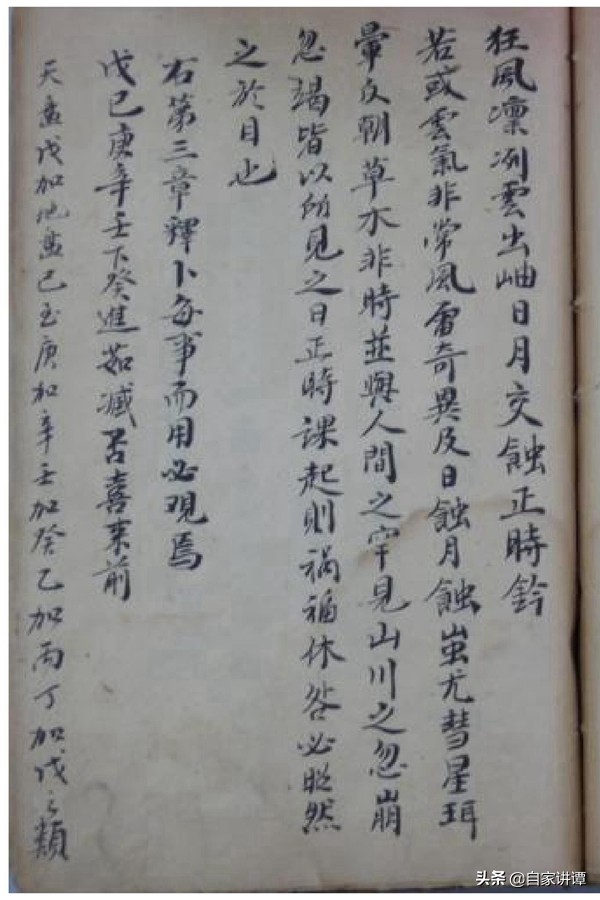 狂風凜冽雲出岫日月交蝕正時鈐
若或雲氣非常風雷奇異及日蝕月蝕蚩尤彗星珥
暈反朝草木非時並與人間之罕見山川之忽崩
忽竭皆以所見之日正時課起則禍福休咎必昭然
之於目也
右第三章釋卜每事而用必观焉
戊己庚辛壬下癸進茹减否喜来前
天盘戊加地盘己至庚加辛壬加癸乙加丙丁加戊之類
头条 @自家讲谭